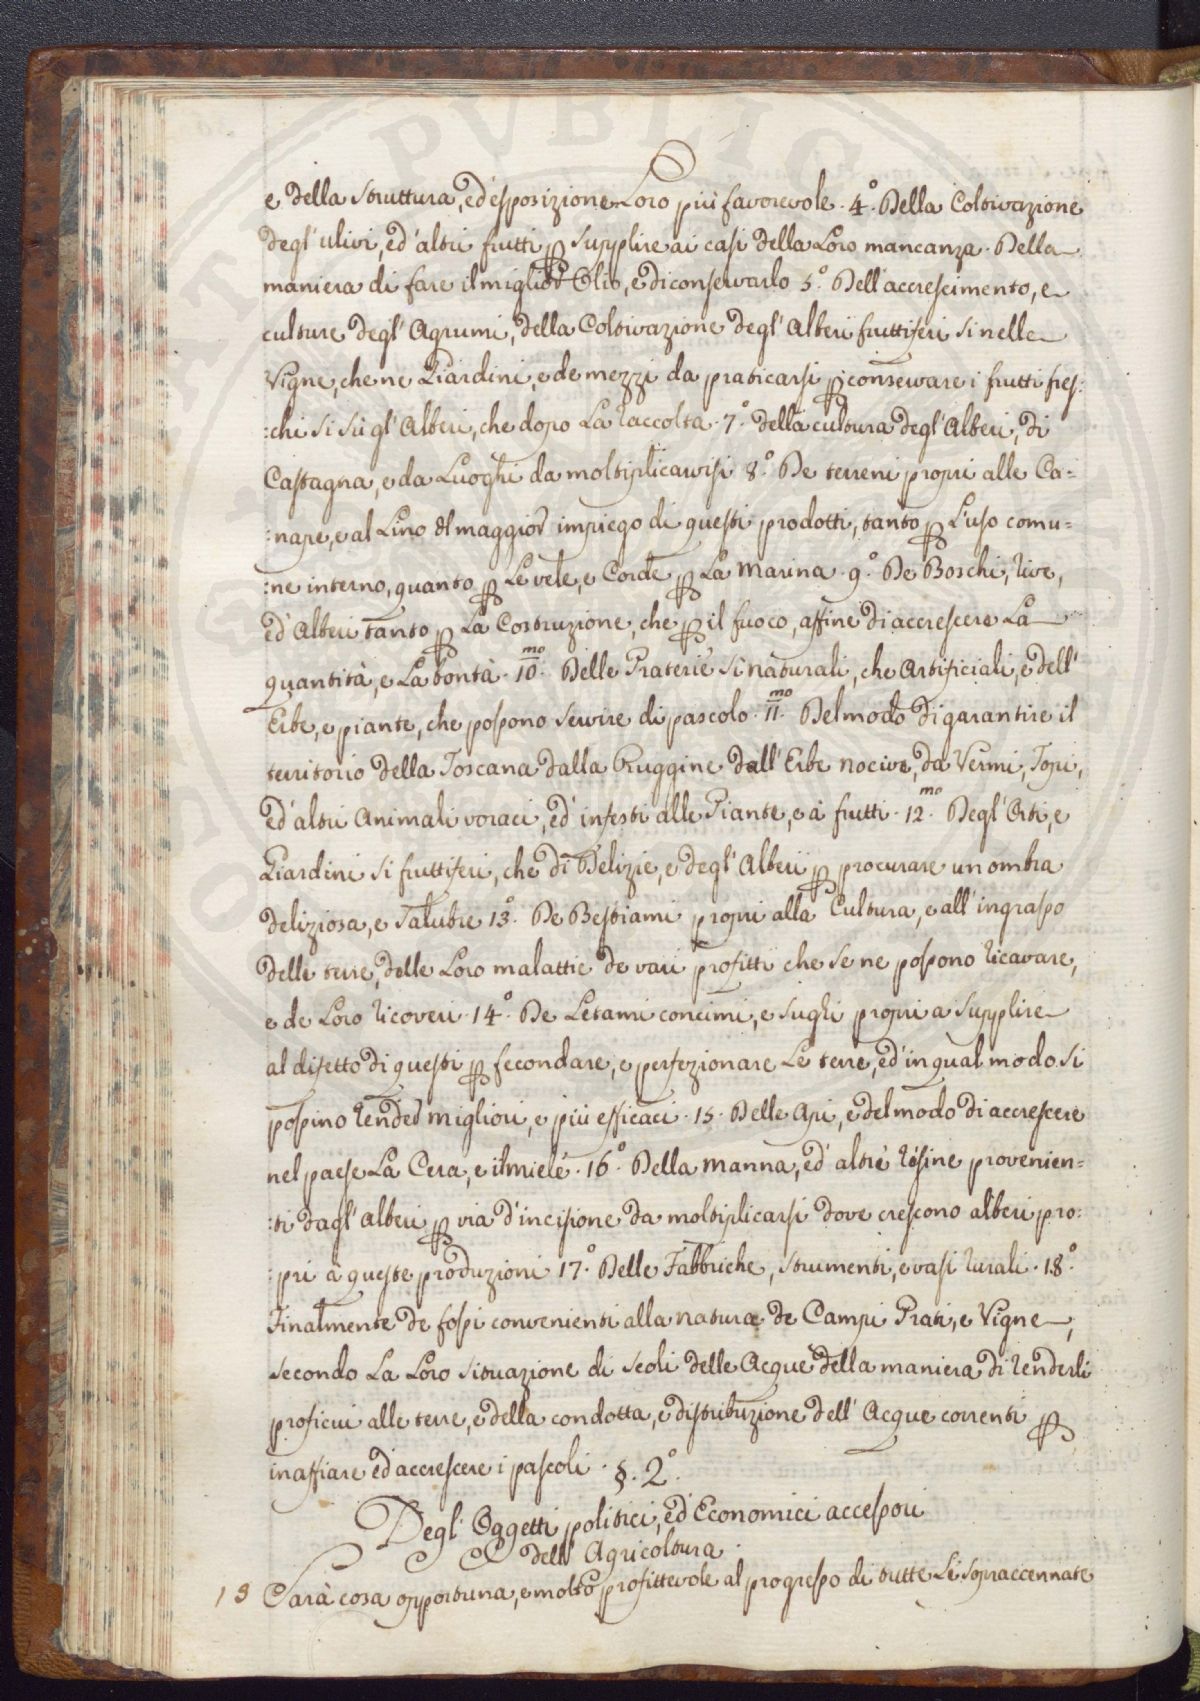 e della struttura, ed'esposizione Loro più favorevole. 4.° Della Coltivazione
degl'ulivi, ed'altri frutti p supplire ai casi della Loro mancanza. Della
maniera di fare il miglior Olio, e di conservarlo 5.° Dell'accrescimento, e
culture degl'Agrumi, della Coltivazione degl'Alberi fruttiferi si nelle
Vigne, che ne Giardini, e de mezzi da praticarsi p conservare i frutti fres:
:chi si sù gl'Alberi, che dopo La raccolta. 7.° della cultura degl'Alberi, di
Castagna, e da Luoghi da moltiplicarvisi 8.° De terreni propri alle Ca=
:nape, e al Lino del maggior impiego di questi prodotti, tanto p L'uso comu=
:ne interno, quanto p Le vele, e Corde p La Marina. 9.° De Boschi, rive,
ed'Alberi tanto p La Costruzione, che p il fuoco, affine di accrescere La
quantità, e La bontà. 10.mo Delle Praterie si naturali, che Artificiali, e dell'
Erbe, e piante, che possono servire di pascolo. 11.mo Del modo di garantire il
territorio della Toscana dalla Ruggine dall'Erbe nocive, da Vermi, Topi,
ed'altri Animali voraci, ed'infesti alle Piante, e à frutti. 12.mo Degl'Orti, e
Giardini si fruttiferi, che di Delizie, e degl'Alberi p procurare un ombra
deliziosa, e Salubre 13.° De Bestiami propri alla Cultura, e all'ingrasso
delle terre, delle Loro malattie de vari profitti che se ne possono ricavare,
e de Loro ricoveri. 14.° De Letami concimi, e sughi propri a supplire
al difetto di questi p fecondare, e perfezionare Le terre, ed'in qual modo si
possino render migliori, e più efficaci. 15. Delle Api, e del modo di accrescere
nel paese La Cera, e il miele. 16.° Della Manna, ed'altre résine provenien=
:ti dagl'Alberi p via d'incisione da moltiplicarsi dove crescono alberi pro:
:pri a queste produzioni 17.° Delle Fabbriche, strumenti, e vasi rurali. 18.°
Finalmente de fossi convenienti alla natura de Campi Prati, e Vigne,
secondo La Loro situazione di scoli delle Acque della maniera di renderli
proficui alle terre, e della condotta, e distribuzione dell'Acque correnti p
inaffiare ed accrescere i pascoli. §. 2.°
Degl'Oggetti politici, ed'Economici accessori
dell'Agricoltura.
19 Sarà cosa opportuna, e molto profittevole al progresso di tutte Le sopraccennate